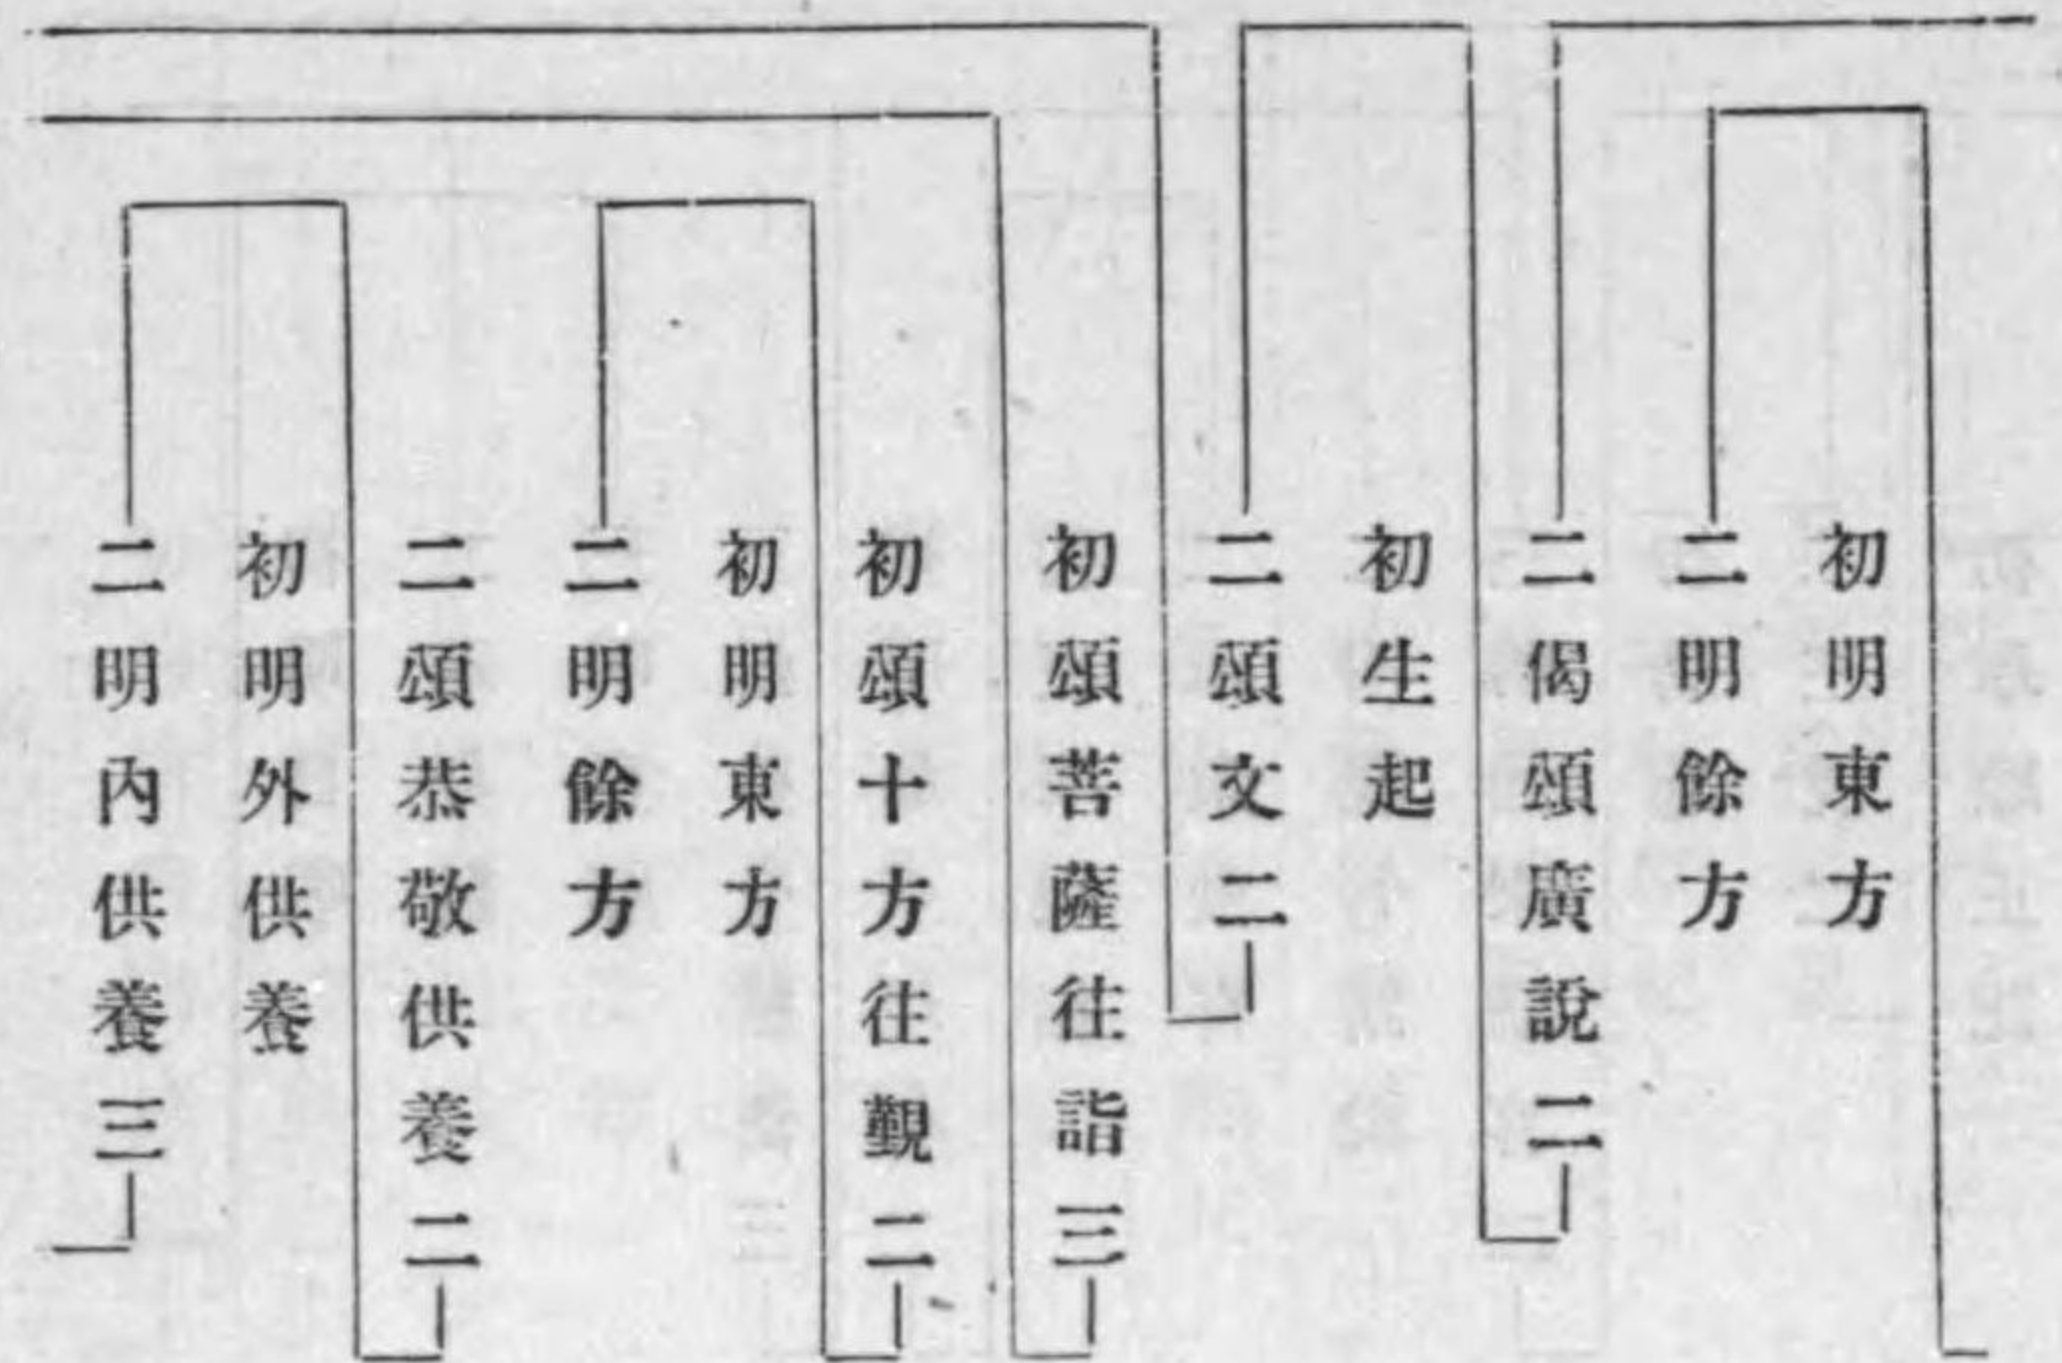 初明東方
二明餘方
二偈頌廣說二
初生起
二頌文二
初頌菩薩往詣三
初頌十方往覲二
初明東方
二明餘方
二頌恭敬供養二
初明外供養
二明內供養三